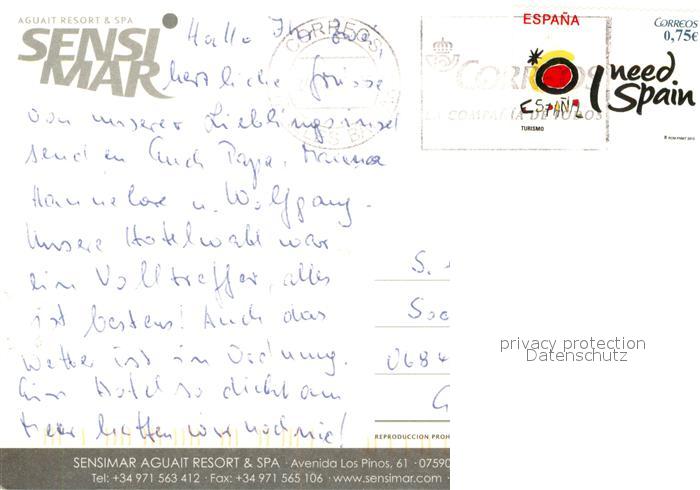 AGUAIT RESORT & SPA
SENSI
MAR
Hallo Ihr zwei,
herzliche Grüsse
von unserer Lieblingsinsel
senden Euch Papa, Mama
Hannelore u. Wolfgang.
Unsere Hotelwahl war
ein Volltreffer, alles
ist bestens! Auch das
Wetter ist in Ordnung.
Ein Hotel so dicht am
Meer hatten wir noch nie!
CORREOS
CORREOS
LA COMPAÑIA DE TODOS
ESPAÑA
ESPAÑA
TURISMO
CORREOS
0,75€
I need
Spain
S.
0684
privacy protection
Datenschutz
REPRODUCCION PROH
SENSIMAR AGUAIT RESORT & SPA · Avenida Los Pinos, 61 · 07590
Tel: +34 971 563 412 · Fax: +34 971 565 106 · www.sensimar.com